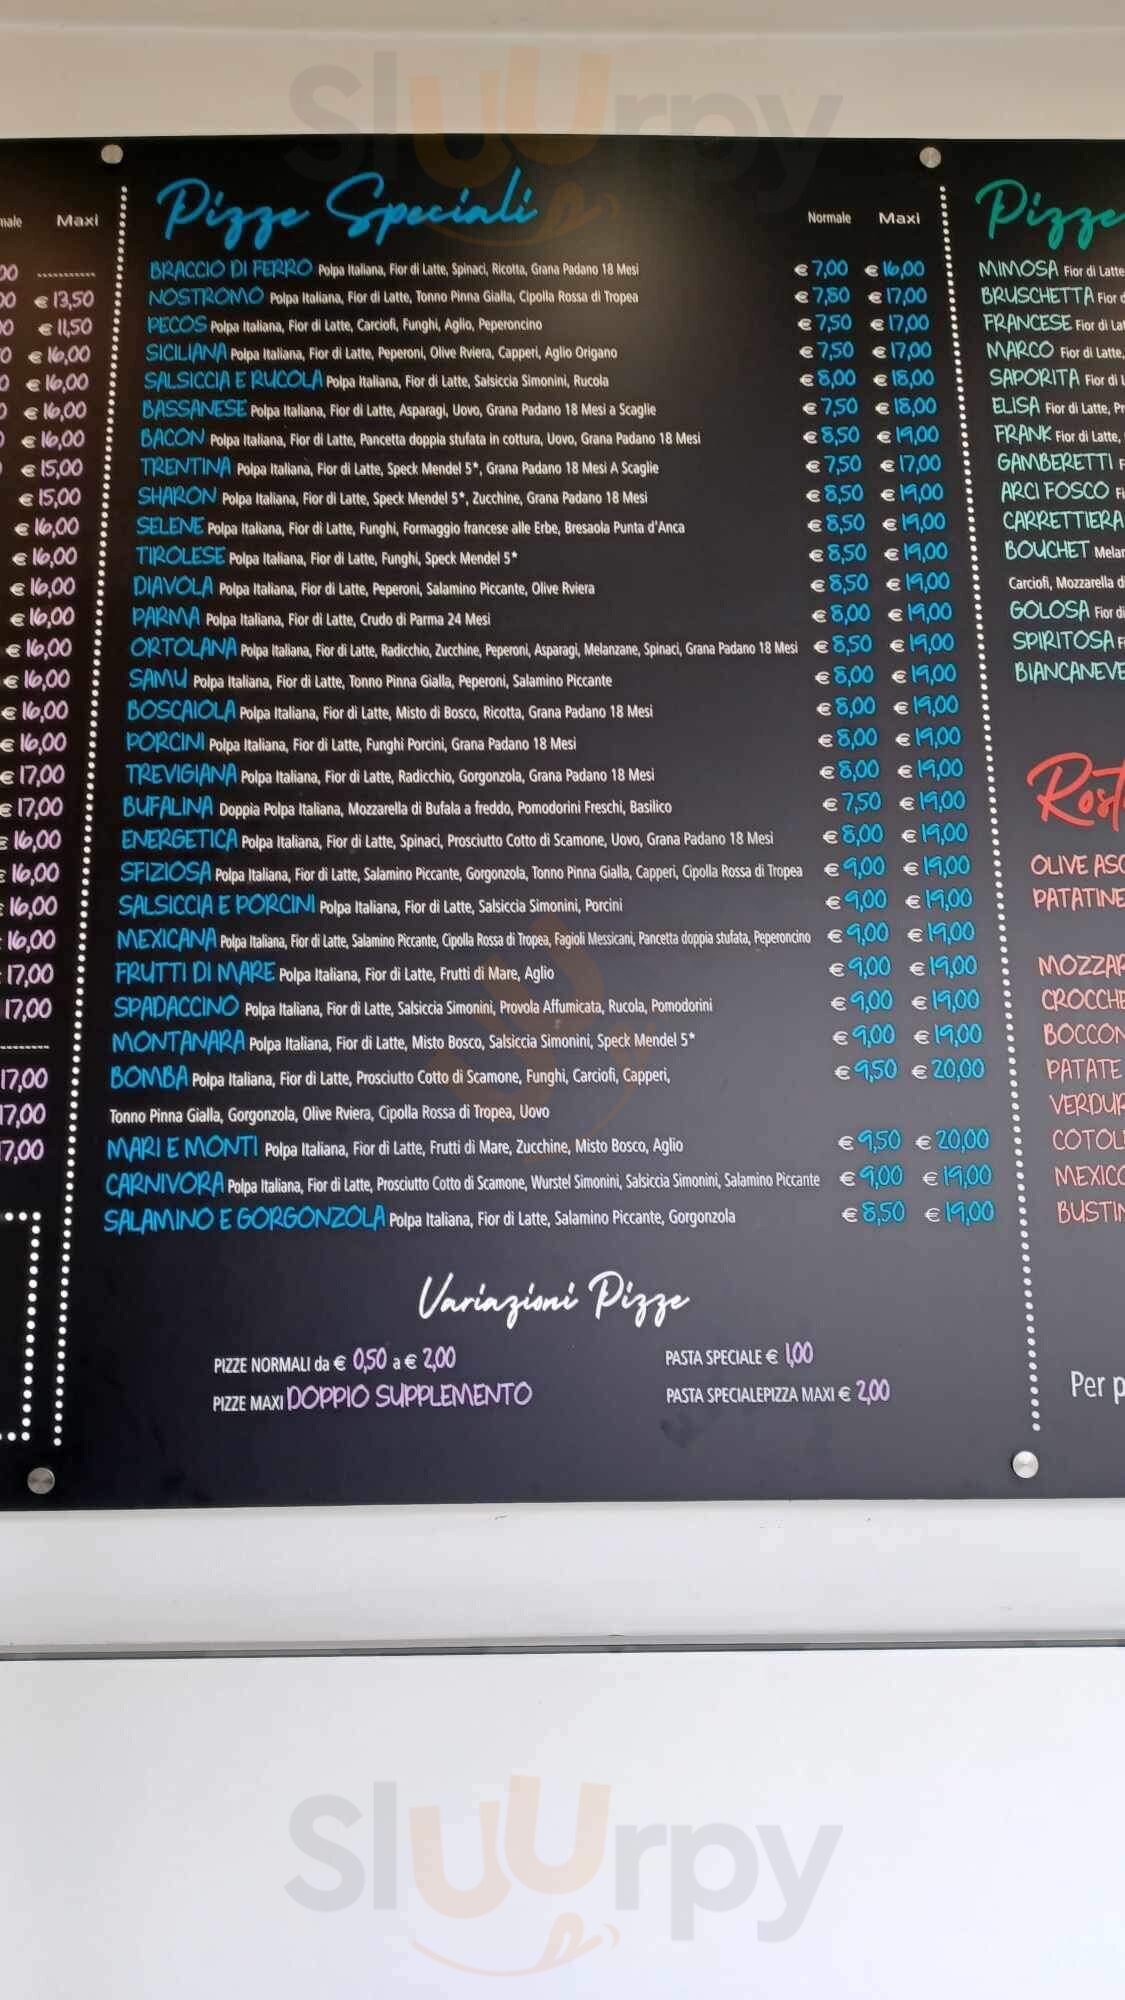 Sluurpy
male Maxi
00 ----------
00 € 13,50
00 € 11,50
0 € 16,00
0 € 16,00
0 € 16,00
) € 16,00
€ 15,00
€ 15,00
€ 16,00
€ 16,00
€ 16,00
€ 16,00
€ 16,00
€ 16,00
€ 16,00
€ 16,00
€ 17,00
€ 17,00
€ 16,00
€ 16,00
€ 16,00
16,00
17,00
17,00
--------
17,00
17,00
17,00
Pizze Speciali Normale Maxi
BRACCIO DI FERRO Polpa Italiana, Fior di Latte, Spinaci, Ricotta, Grana Padano 18 Mesi € 7,00 € 16,00
NOSTROMO Polpa Italiana, Fior di Latte, Tonno Pinna Gialla, Cipolla Rossa di Tropea € 7,50 € 17,00
PECOS Polpa Italiana, Fior di Latte, Carciofi, Funghi, Aglio, Peperoncino € 7,50 € 17,00
SICILIANA Polpa Italiana, Fior di Latte, Peperoni, Olive Rviera, Capperi, Aglio Origano € 7,50 € 17,00
SALSICCIA E RUCOLA Polpa Italiana, Fior di Latte, Salsiccia Simonini, Rucola € 8,00 € 18,00
BASSANESE Polpa Italiana, Fior di Latte, Asparagi, Uovo, Grana Padano 18 Mesi a Scaglie € 7,50 € 18,00
BACON Polpa Italiana, Fior di Latte, Pancetta doppia stufata in cottura, Uovo, Grana Padano 18 Mesi € 8,50 € 19,00
TRENTINA Polpa Italiana, Fior di Latte, Speck Mendel 5*, Grana Padano 18 Mesi A Scaglie € 7,50 € 17,00
SHARON Polpa Italiana, Fior di Latte, Speck Mendel 5*, Zucchine, Grana Padano 18 Mesi € 8,50 € 19,00
SELENE Polpa Italiana, Fior di Latte, Funghi, Formaggio francese alle Erbe, Bresaola Punta d'Anca € 8,50 € 19,00
TIROLESE Polpa Italiana, Fior di Latte, Funghi, Speck Mendel 5* € 8,50 € 19,00
DIAVOLA Polpa Italiana, Fior di Latte, Peperoni, Salamino Piccante, Olive Rviera € 8,50 € 19,00
PARMA Polpa Italiana, Fior di Latte, Crudo di Parma 24 Mesi € 8,00 € 19,00
ORTOLANA Polpa Italiana, Fior di Latte, Radicchio, Zucchine, Peperoni, Asparagi, Melanzane, Spinaci, Grana Padano 18 Mesi € 8,50 € 19,00
SAMU Polpa Italiana, Fior di Latte, Tonno Pinna Gialla, Peperoni, Salamino Piccante € 8,00 € 19,00
BOSCAIOLA Polpa Italiana, Fior di Latte, Misto di Bosco, Ricotta, Grana Padano 18 Mesi € 8,00 € 19,00
PORCINI Polpa Italiana, Fior di Latte, Funghi Porcini, Grana Padano 18 Mesi € 8,00 € 19,00
TREVIGIANA Polpa Italiana, Fior di Latte, Radicchio, Gorgonzola, Grana Padano 18 Mesi € 8,00 € 19,00
BUFALINA Doppia Polpa Italiana, Mozzarella di Bufala a freddo, Pomodorini Freschi, Basilico € 7,50 € 19,00
ENERGETICA Polpa Italiana, Fior di Latte, Spinaci, Prosciutto Cotto di Scamone, Uovo, Grana Padano 18 Mesi € 8,00 € 19,00
SFIZIOSA Polpa Italiana, Fior di Latte, Salamino Piccante, Gorgonzola, Tonno Pinna Gialla, Capperi, Cipolla Rossa di Tropea € 9,00 € 19,00
SALSICCIA E PORCINI Polpa Italiana, Fior di Latte, Salsiccia Simonini, Porcini € 9,00 € 19,00
MEXICANA Polpa Italiana, Fior di Latte, Salamino Piccante, Cipolla Rossa di Tropea, Fagioli Messicani, Pancetta doppia stufata, Peperoncino € 9,00 € 19,00
FRUTTI DI MARE Polpa Italiana, Fior di Latte, Frutti di Mare, Aglio € 9,00 € 19,00
SPADACCINO Polpa Italiana, Fior di Latte, Salsiccia Simonini, Provola Affumicata, Rucola, Pomodorini € 9,00 € 19,00
MONTANARA Polpa Italiana, Fior di Latte, Misto Bosco, Salsiccia Simonini, Speck Mendel 5* € 9,00 € 19,00
BOMBA Polpa Italiana, Fior di Latte, Prosciutto Cotto di Scamone, Funghi, Carciofi, Capperi, € 9,50 € 20,00
Tonno Pinna Gialla, Gorgonzola, Olive Rviera, Cipolla Rossa di Tropea, Uovo
MARI E MONTI Polpa Italiana, Fior di Latte, Frutti di Mare, Zucchine, Misto Bosco, Aglio € 9,50 € 20,00
CARNIVORA Polpa Italiana, Fior di Latte, Prosciutto Cotto di Scamone, Wurstel Simonini, Salsiccia Simonini, Salamino Piccante € 9,00 € 19,00
SALAMINO E GORGONZOLA Polpa Italiana, Fior di Latte, Salamino Piccante, Gorgonzola € 8,50 € 19,00
Variazioni Pizze
PIZZE NORMALI da € 0,50 a € 2,00
PIZZE MAXI DOPPIO SUPPLEMENTO
PASTA SPECIALE € 1,00
PASTA SPECIALEPIZZA MAXI € 2,00
Pizze
MIMOSA Fior di Latte
BRUSCHETTA Fior d
FRANCESE Fior di La
MARCO Fior di Latte,
SAPORITA Fior di L
ELISA Fior di Latte, Pr
FRANK Fior di Latte,
GAMBERETTI F
ARCI FOSCO Fi
CARRETTIERA
BOUCHET Melan
Carciofi, Mozzarella d
GOLOSA Fior di
SPIRITOSA F
BIANCANEVE
Rost
OLIVE ASC
PATATINE
MOZZAR
CROCCHE
BOCCON
PATATE
VERDUR
COTOL
MEXICO
BUSTIN
Per p
Sluurpy